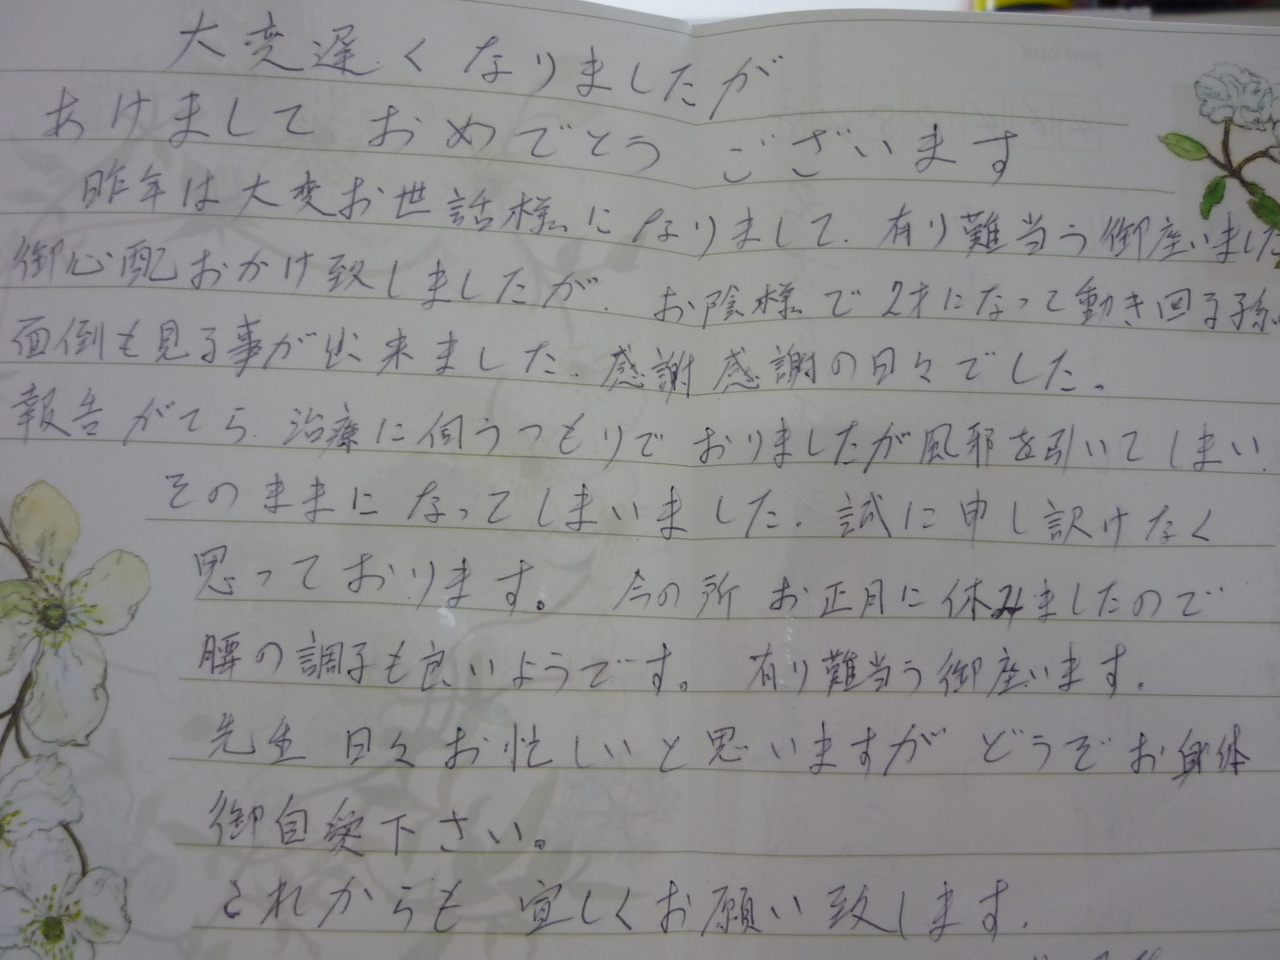 大変遅くなりましたが
あけまして おめでとう ございます
昨年は大変お世話様になりまして、有り難当う御座いました
御心配おかけ致しましたが、お陰様で2才になって動き回る孫
面倒も見る事が出来ました、感謝感謝の日々でした。
報告がてら、治療に伺うつもりでおりましたが風邪を引いてしまい、
そのままになってしまいました、誠に申し訳けなく
思っております。 今の所 お正月に休みましたので
腰の調子も良いようです。 有り難当う御座います。
先生 日々お忙しいと思いますが どうぞお身体
御自愛下さい。
これからも 宜しくお願い致します。
post card